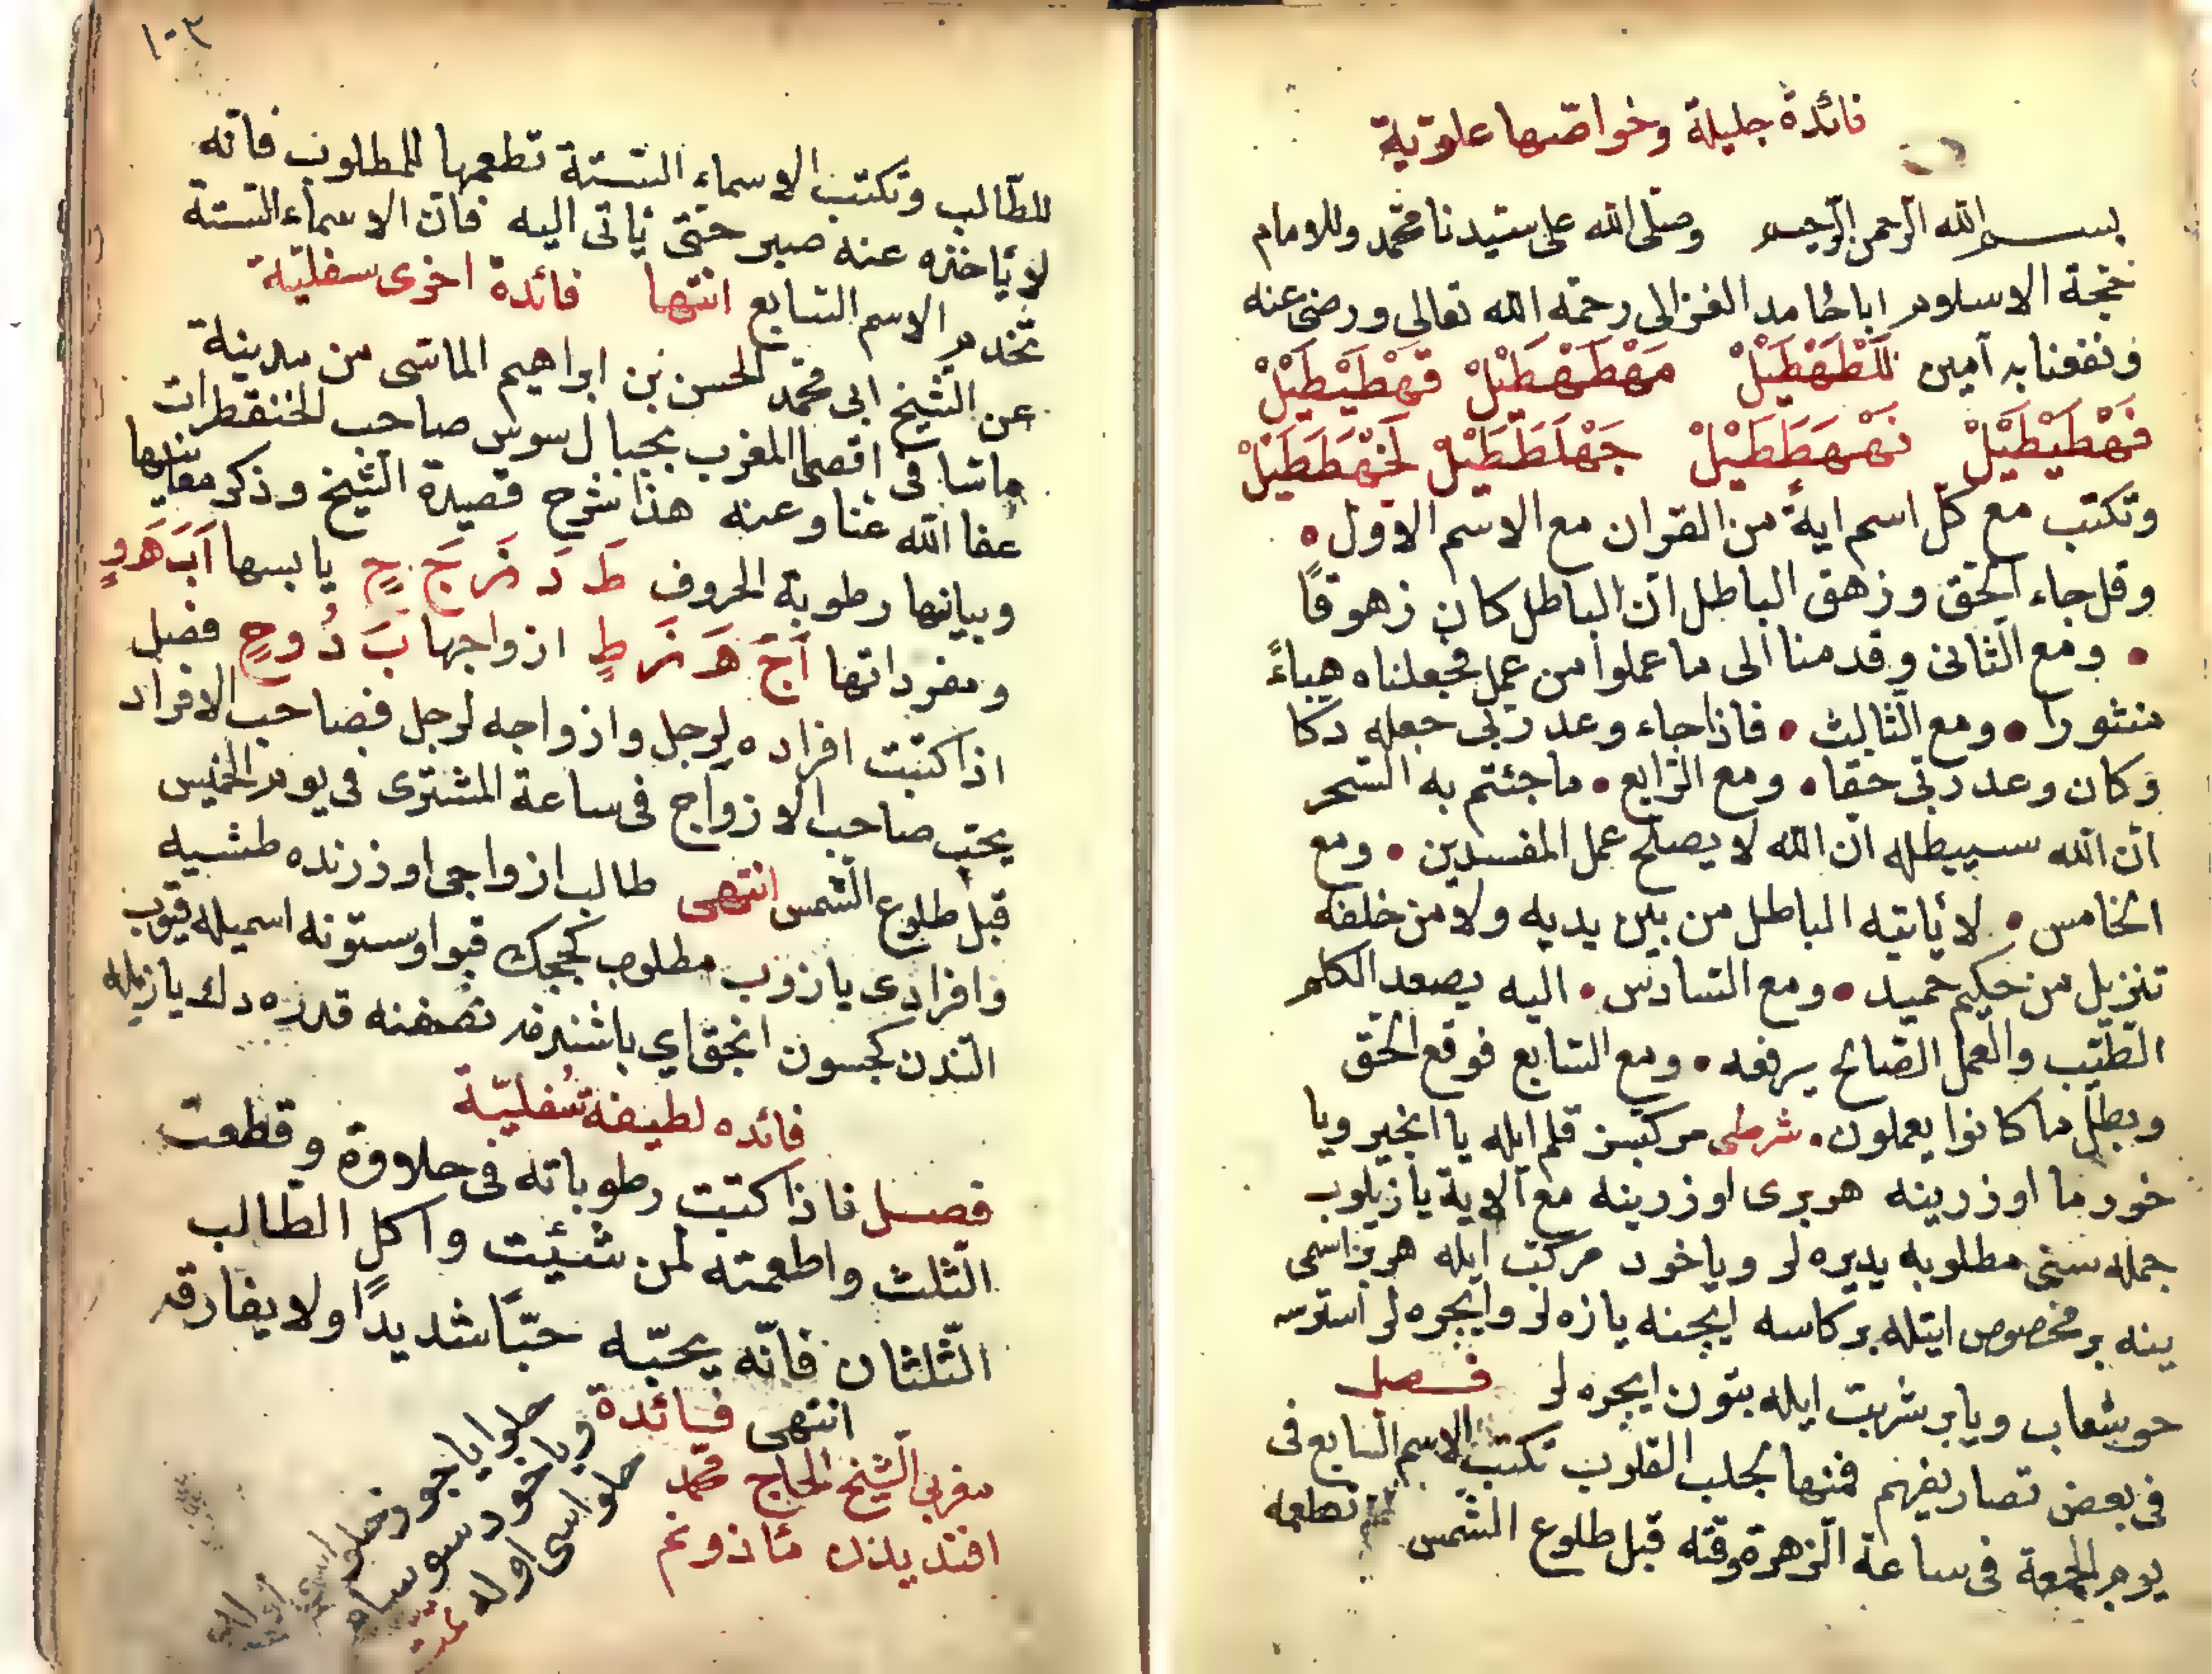 فائدة جليلة وخواصّها علويّة
بسم الله الرحمن الرحيم وصلى الله على سيّدنا محمّد وللامام
حجّة الاسلام ابا حامد الغزالى رحمه الله تعالى ورضى عنه
ونفعنا به آمين لَلَطَهْطَيْلْ مَهْطَهْطَيْلْ قَهْطَيْطَيْلْ
فَهْطَيْطَيْلْ نَهْهَطَطَيْلْ جَهْلَطَطَيْلْ لَخْهَطَطَيْلْ
وتكتب مع كلّ اسم ايةً من القران مع الاسم الاوّل
وقل جاء الحقّ وزهق الباطل انّ الباطل كان زهوقًا
ومع الثانى وقدمنا الى ما عملوا من عمل فجعلناه هباءً
منثورا ومع الثالث فاذا جاء وعد ربّى جعله دكا
وكان وعد ربّى حقا ومع الرّابع ما جئتم به السّحر
انّ الله سيبطله انّ الله لا يصلح عمل المفسدين ومع
الخامس لا يأتيه الباطل من بين يديه ولا من خلفه
تنزيل من حكيم حميد ومع السّادس اليه يصعد الكلم
الطّيّب والعمل الصّالح يرفعه ومع السّابع فوقع الحقّ
وبطل ما كانوا يعملون شرطى مركبسز قلم ايله يا انجير ويا
خورما اوزرينه هر برى اوزرينه مع الاية يازيلوب
جمله سنى مطلوبه يديره لر وياخود مركّب ايله هر بر اسمى
ينه بر مخصوص ايتله بر كاسه ايچنه يازه لر وايچره لر استرسه
خوشعاب ويا بر شربت ايله بتون ايچره لر فصل
فى بعض تصاريفهم فمنها لجلب القلوب تكتب الاسم السّابع فى
يوم الجمعة فى ساعة الزّهرة وقته قبل طلوع الشّمس تطعمه
١٠٣
للطّالب وتكتب الاسماء السّتّة تطعمها للمطلوب فانّه
لا يأخذه عنه صبر حتّى يأتى اليه فانّ الاسماء السّتة
تخدم الاسم السّابع انتها فائدة اخرى سفليّة
عن الشّيخ ابى محمّد الحسن بن ابراهيم الماسّى من مدينة
ماسّا فى اقصا المغرب بجبال سوس صاحب الخنقطرات
عفا الله عنّا وعنه هذا شرح قصيدة الشّيخ وذكر معانيها
وبيانها رطوبة الحروف طَ دَ زَ جَ حٍ يابسها اَبَ هَ وٍ
ومفرداتها اَجَ هَ زَ طٍ ازواجها بَ دُ وحٍ فصل
اذا كتبت افراده لرجل وازواجه لرجل فصاحب الافراد
يحبّ صاحب الازواج فى ساعة المشترى فى يوم الخميس
قبل طلوع الشّمس انتهى طالب ازواجى اوزرنده طشيه
وافرادى يازوب مطلوب كجه جك قبو اوستونه اسميله قيوب
التدن كچسون انجق اي باشندن نصفنه قدر ده دك يازيله
فائده لطيفة سُفليّة
فصل فاذا كتبت رطوباته فى حلاوة وقطعت
الثّلث واطعمته لمن شئيت واكل الطّالب
الثّلثان فانّه يحبّه حبّا شديدًا ولا يفارقه
انتهى فائدة
مغربى الشّيخ الحاج محمّد
افنديدن مأذونم
حلوا يا جوز حلواسى
وياخود سوسام
حلواسى اولد